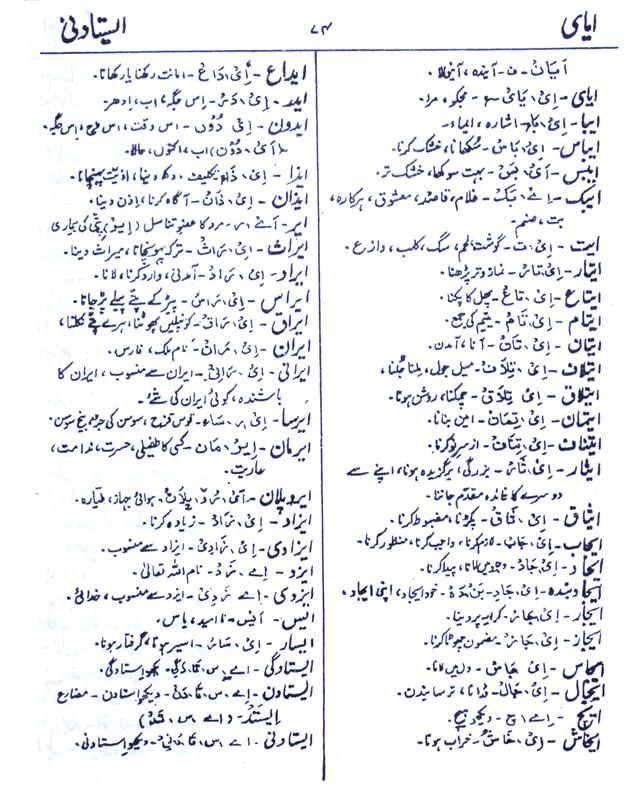 ایای
۷۴
ایستادنی
اَیَیان - ف - آیندہ، آنیوالا.
ایای - اِیْ، یَائیْ - مجکو، مرا.
ایبا - اِیْ، بَا - اشارہ، ایماء.
ایباس - اِیْ، بَاسْ - سُکھانا، خشک کرنا.
ایبس - اَیْ، بَسْ - بہت سوکھا، خشک تر.
ایبک - اَےْ، بَکْ - غلام، قاصد، معشوق، ہرکارہ،
بت، صنم.
ایت - اِیْ، تْ - گوشت، لحم، سگ، کلب، وازع.
ایتار - اِیْ، تَارْ - نماز وتر پڑھنا.
ایتاع - اِیْ، تَاعْ - پھل کا پکنا.
ایتام - اِیْ، تَامْ - یتیم کی جمع.
ایتان - اِیْ، تَانْ - آنا، آمدن.
ایتلاف - اِیْ، تِلَافْ - میل جول، ملنا جُلنا.
ایتلاق - اِیْ، تِلَاقْ - چمکنا، روشن ہونا.
ایتمان - اِیْ، تِمَانْ - امین بنانا.
ایتناف - اِیْ، تِنَافْ - از سرنو کرنا.
ایثار - اِیْ، ثَارْ - بزرگی، برگزیدہ ہونا، اپنے سے
دوسرے کا فائدہ مقدم جاننا.
ایثاق - اِیْ، ثَاقْ - پکڑنا، مضبوط کرنا.
ایجاب - اِیْ، جَابْ - لازم کرنا، واجب کرنا، منظور کرنا.
ایجاد - اِیْ، جَادْ - وجود میں لانا، پیدا کرنا.
ایجاد بندہ - اِیْ، جَادِ - بَنْ، دَہْ - خود ایجاد، اپنی ایجاد.
ایجار - اِیْ، جَارْ - کرایہ پر دینا.
ایجاز - اِیْ، جَازْ - مضمون چھوٹا کرنا.
ایجاس - اِیْ، جَاسْ - دل میں لانا.
ایجال - اِیْ، جَالْ - ڈرانا، ترسانیدن.
ایچ - اِےْ، چْ - دیکھو ہیچ.
ایخاش - اِیْ، خَاشْ - خراب ہونا.
ایداع - اِیْ، دَاعْ - امانت رکھنا یا رکھانا.
ایدر - اِیْ، دَرْ - اِس جگہ، اب، اِدھر.
ایدون - اِیْ، دُوْنْ - اس وقت، اس طرح، اِس جگہ.
(اَیْ، دُوْنْ) اب، اکنوں، حالا.
ایذا - اِیْ، ذَا - تکلیف، دکھ دینا، اذیت پہنچانا.
ایذان - اِیْ، ذَانْ - آگاہ کرنا، اِذن دینا.
ایر - اَےْ، رْ - مرد کا عضو تناسل (اِیْرْ) پتّی کی بیماری
ایراث - اِیْ، رَاثْ - ترکہ پہونچانا، میراث دینا.
ایراد - اِیْ، رَادْ - آمدنی، وارد کرنا، لانا.
ایراس - اِیْ، رَاسْ - پیڑ کے پتے پیلے پڑ جانا.
ایراق - اِیْ، رَاقْ - کونپلیں پھوٹنا، ہرے پتّے نکلنا.
ایران - اِیْ، رَانْ - نام ملک، فارس.
ایرانی - اِیْ، رَانِیْ - ایران سے منسوب، ایران کا
باشندہ، کوئی ایران کی شے.
ایرسا - اِیْ، رْ، سَاء - قوس قزح، سوسن کی جڑ، بیخ سوسن.
ایرمان - اِیْرْ، مَانْ - کسی کا طفیلی، حسرت، ندامت،
عاریت.
ایروپلان - اَیْ، رُوْ، پِلَانْ - ہوائی جہاز، طیارہ.
ایزاد - اِیْ، زَادْ - زیادہ کرنا.
ایزادی - اِیْ، زَادِیْ - ایزاد سے منسوب.
ایزد - اِےْ، زَدْ - نام اللہ تعالیٰ.
ایزدی - اِےْ، زَدِیْ - ایزد سے منسوب، خدائی.
ایس - اَیْس - نا امید، یاس.
ایسار - اِیْ، سَارْ - اسیر ہونا، گرفتار ہونا.
ایستادگی - اِےْ، سْ، تَا، دَگِیْ - دیکھو استادگی.
ایستادن - اِےْ، سْ، تَا، دَنْ - دیکھو استادن - مضارع
اِیستَد - (اِےْ، سْ، تَدْ)
ایستادنی - اِےْ، سْ، تَا، دَنِیْ - دیکھو استادنی.